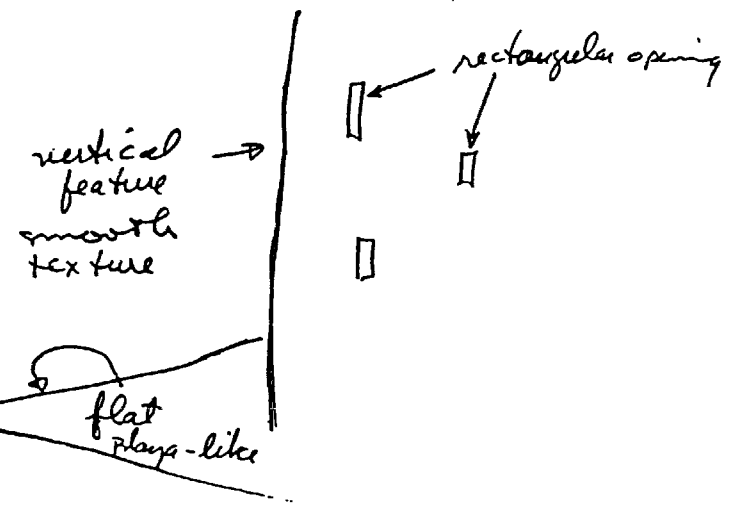 rectangular opening
vertical
feature
smooth
texture
flat
playa-like